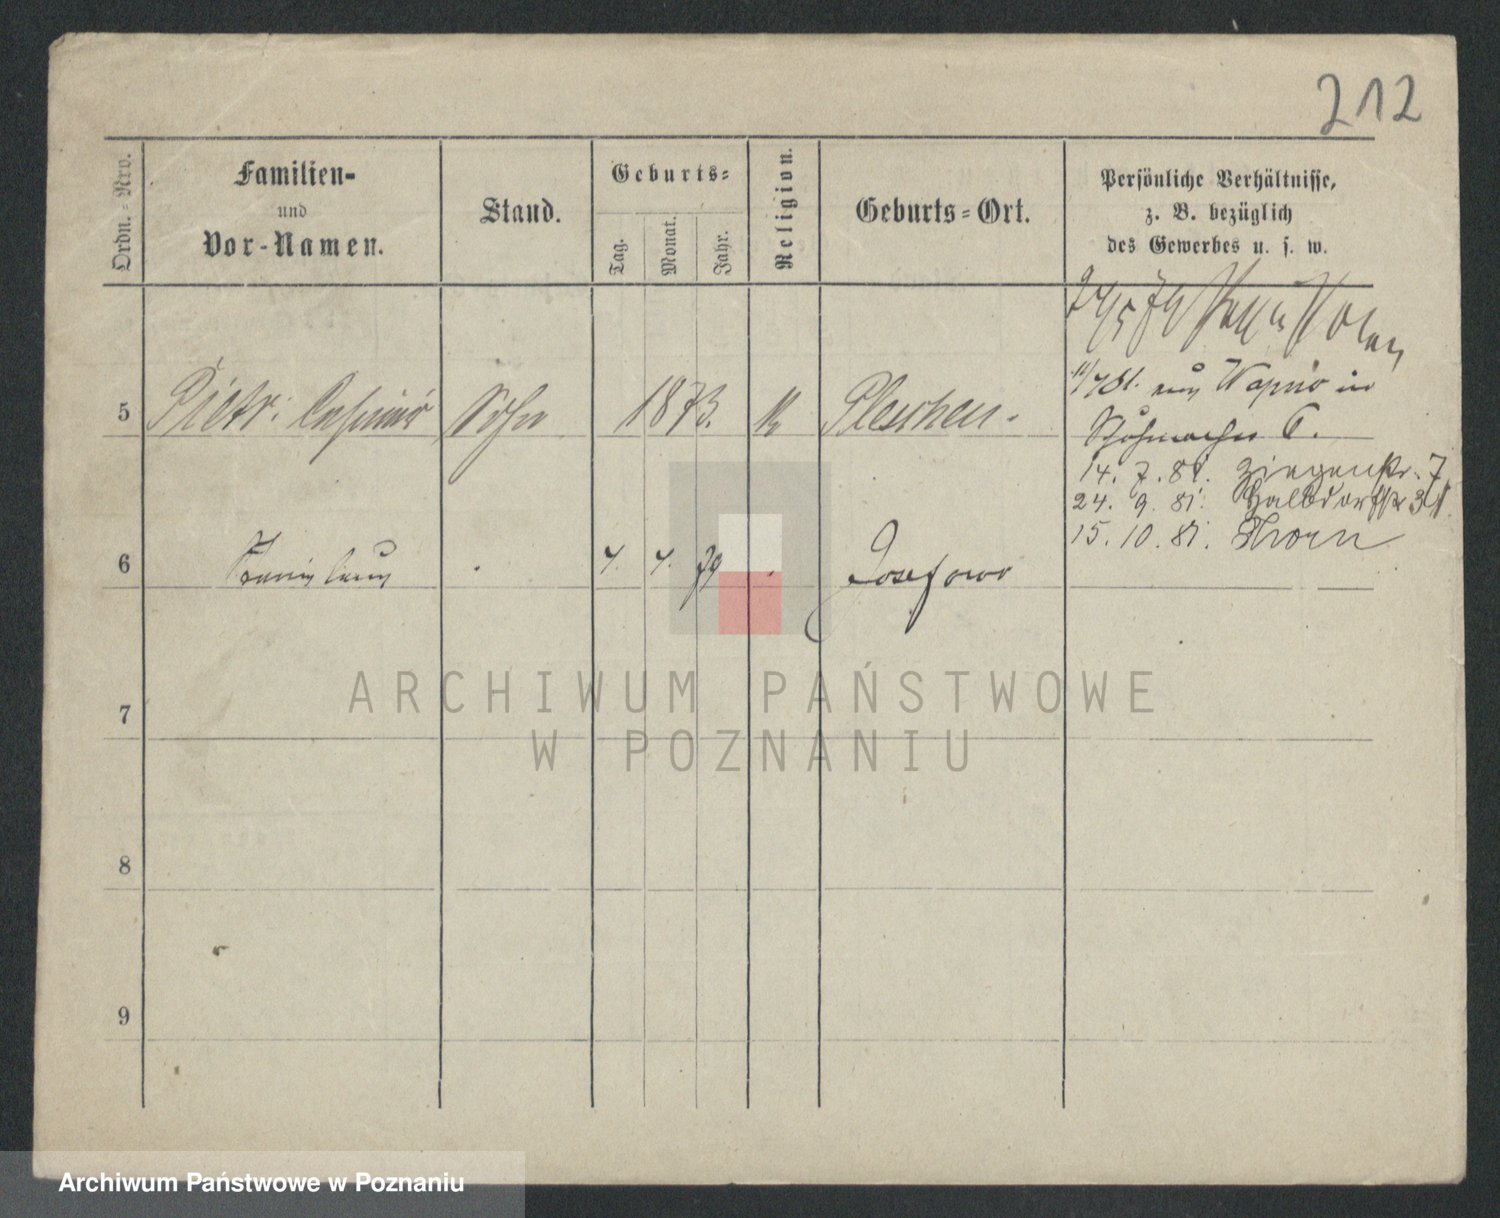 212
Ordn.=Nro.
Familien-
und
Vor-Namen.
Stand.
Geburts=
Tag.
Monat.
Jahr.
Religion.
Geburts=Ort.
Persönliche Verhältnisse,
z. B. bezüglich
des Gewerbes u. s. w.
5
Pietr. Casimir
Sohn
1873.
K
Pleschen.
in
14. 7. 81. Ziegenstr. 7
24. 9. 81. Halbdorfstr 31
15. 10. 81. Thorn
6
Stanislaus
4. 4. 79
Josefowo
7
8
9
ARCHIWUM PAŃSTWOWE
W POZNANIU
Archiwum Państwowe w Poznaniu